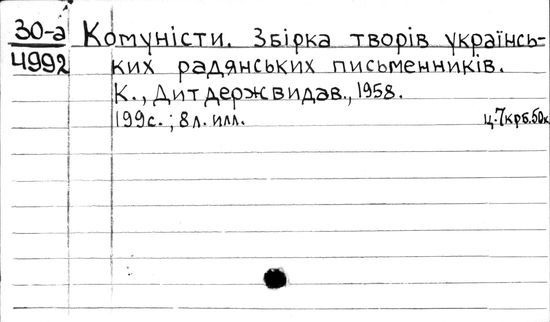 30-а Комуністи. Збірка творів українсь-
4992 ких радянських письменників.
К., Дитдержвидав., 1958.
199с.; 8л. илл. ц. 7крб.50к